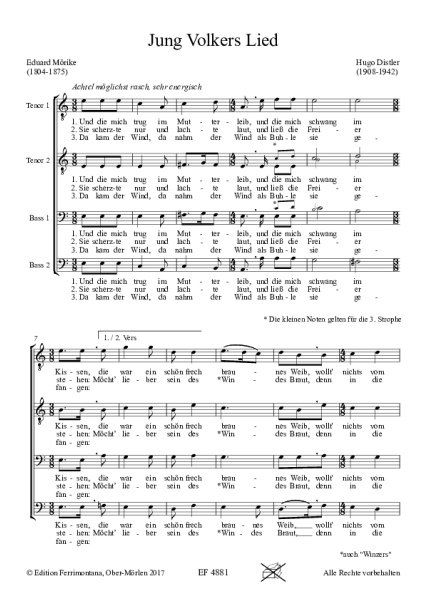 Jung Volkers Lied
Eduard Mörike
(1804-1875)
Hugo Distler
(1908-1942)
Achtel möglichst rasch, sehr energisch
Tenor 1
1. Und die mich trug im Mut - ter - leib, und die mich schwang im
2. Sie scherz-te nur und lach - te laut, und ließ die Frei - er
3. Da kam der Wind, da nahm der Wind als Buh - le sie ge -
Tenor 2
*
1. Und die mich trug im Mut - ter - leib, und die mich schwang im
2. Sie scherz-te nur und lach - te laut, und ließ die Frei - er
3. Da kam der Wind, da nahm der Wind als Buh - le sie ge -
Bass 1
*
1. Und die mich trug im Mut - ter - leib, und die mich schwang im
2. Sie scherz-te nur und lach - te laut, und ließ die Frei - er
3. Da kam der Wind, da nahm der Wind als Buh - le sie ge -
Bass 2
1. Und die mich trug im Mut - ter - leib, und die mich schwang im
2. Sie scherz-te nur und lach - te laut, und ließ die Frei - er
3. Da kam der Wind, da nahm der Wind als Buh - le sie ge -
* Die kleinen Noten gelten für die 3. Strophe
7
1. / 2. Vers
Kis - sen, die war ein schön frech brau - nes Weib, wollt' nichts vom
ste - hen: Möcht' lie - ber sein des *Win - des Braut, denn in die
fan - gen:
Kis - sen, die war ein schön frech brau - nes Weib, wollt' nichts vom
ste - hen: Möcht' lie - ber sein des *Win - des Braut, denn in die
fan - gen:
Kis - sen, die war ein schön frech brau - nes Weib, wollt' nichts vom
ste - hen: Möcht' lie - ber sein des *Win - des Braut, denn in die
fan - gen:
Kis - sen, die war ein schön frech brau - nes Weib, wollt' nichts vom
ste - hen: Möcht' lie - ber sein des *Win - des Braut, denn in die
fan - gen:
*auch "Winzers"
© Edition Ferrimontana, Ober-Mörlen 2017
EF 4881
Alle Rechte vorbehalten